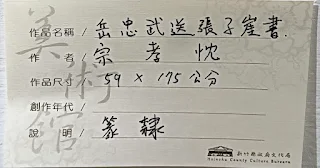 美術館
作品名稱/岳忠武送張子崖書.
作者/宗孝忱
作品尺寸/59×175公分
創作年代/
說明/篆隸
新竹縣政府文化局
Hsinchu County Culture Bureau